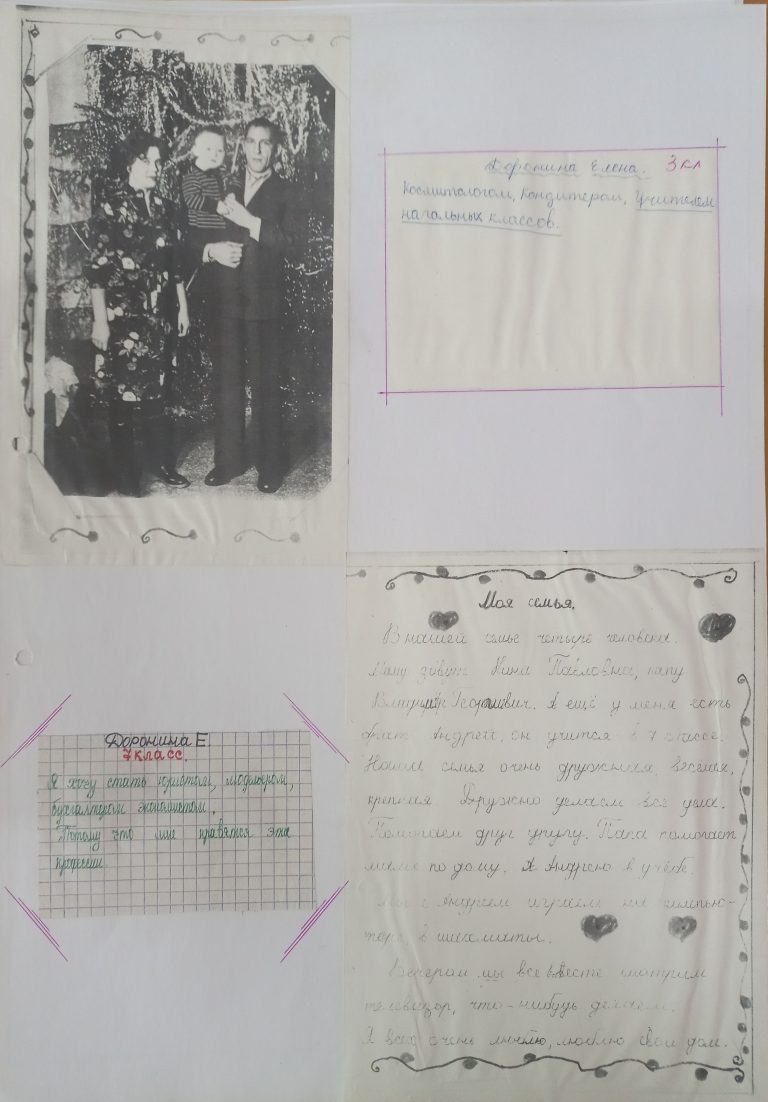 Доронина Елена. 3 кл
Косметологом, Кондитером, Учителем
начальных классов.
Доронина Е.
7 класс.
Я хочу стать юристом, модельером,
бухгалтером экономистом.
Потому что мне нравятся эта
профессии
Моя семья.
В нашей семье четыре человека.
Маму зовут Нина Павловна, папу
Владимир Георгиевич. А ещё у меня есть
брат Андрей, он учится в 7 классе.
Наша семья очень дружная, весёлая,
крепкая. Дружно делаем все дела.
Помогаем друг другу. Папа помогает
маме по дому. Я Андрею в учёбе.
Мы с Андреем играем на компью-
тере, в шахматы.
Вечером мы все вместе смотрим
телевизор, что-нибудь делаем.
Я всех очень люблю, люблю свой дом.